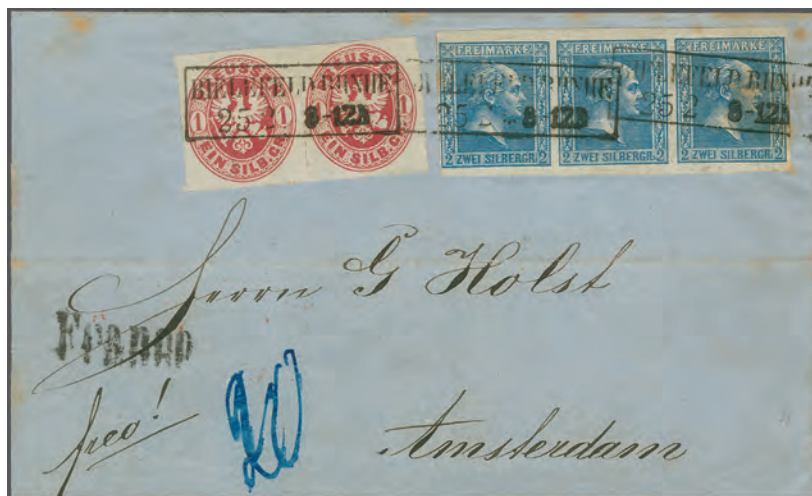 PREUSSEN 1 1 EIN SILB.GR.
PREUSSEN 1 1 EIN SILB.GR.
FREIMARKE 2 ZWEI SILBERGR. 2
FREIMARKE 2 ZWEI SILBERGR. 2
FREIMARKE 2 ZWEI SILBERGR. 2
BIELEFELD BHNHF
25 2 8-12
BIELEFELD BHNHF
25 2 8-12
Herrn G Holst
Franco
frco!
20
Amsterdam